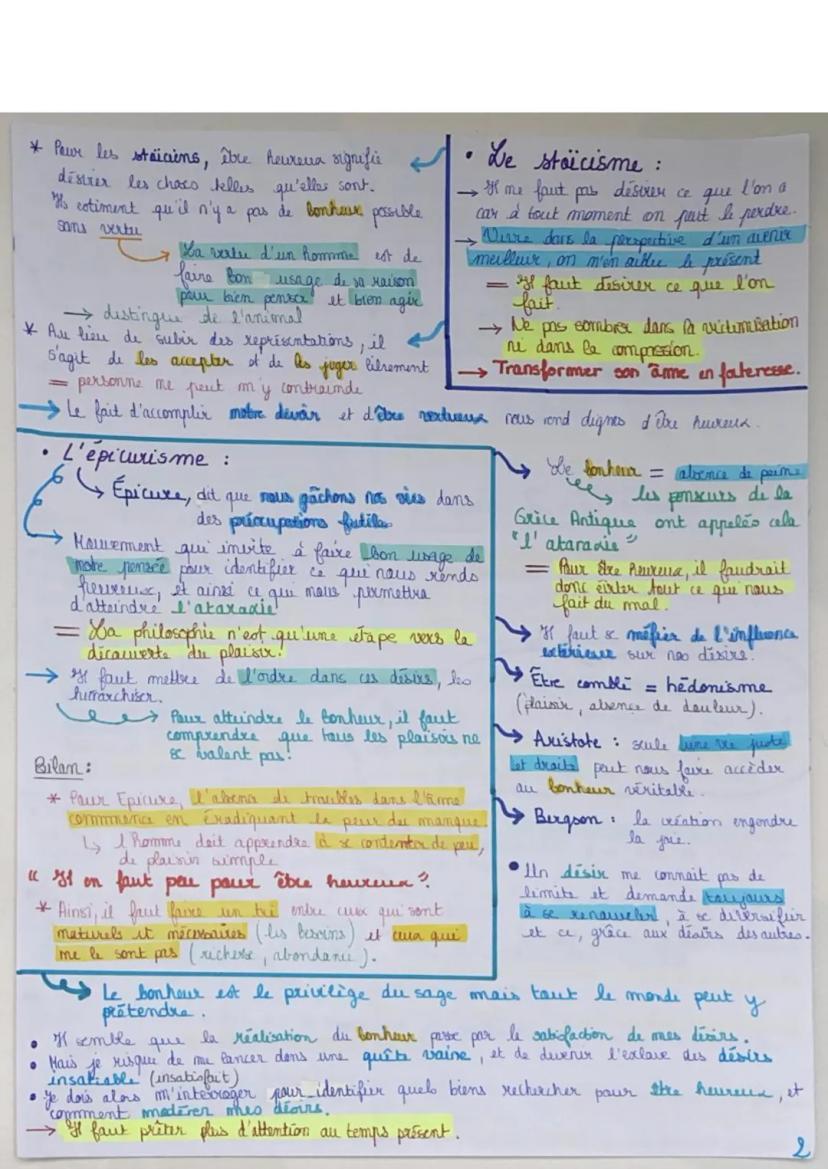 * Pour les stoïciens, être heureux signifie
désirer les choses telles qu'elles sont.
Ils estiment qu'il n'y a pas de bonheur possible
sans vertu
La vertu d'un homme est de
faire bon usage de sa raison
pour bien penser et bien agir
→ distingue de l'animal
* Au lieu de subir des représentations, il
s'agit de les accepter et de les juger librement
= personne ne peut m'y contraindre
• Le stoïcisme :
→ Il ne faut pas désirer ce que l'on a
car à tout moment on peut le perdre.
→ Vivre dans la perspective d'un avenir
meilleur, on m'en oublie le présent
= Il faut désirer ce que l'on
fait.
→ Ne pas sombrer dans la victimisation
ni dans la compassion.
→ Transformer son âme en forteresse.
→ Le fait d'accomplir notre devoir et d'être vertueux nous rend dignes d'être heureux.
• L'épicurisme :
Épicure, dit que nous gâchons nos vies dans
des préocupations futiles
Mouvement qui invite à faire bon usage de
notre pensée pour identifier ce qui nous rends
heureux, et ainsi ce qui nous permettra
d'atteindre l'ataraxie
= La philosophie n'est qu'une étape vers la
découverte du plaisir!
→ Il faut mettre de l'ordre dans ces désirs, les
hiérarchiser.
Pour atteindre le bonheur, il faut
comprendre que tous les plaisirs ne
se valent pas!
Bilan :
* Pour Epicure, l'absence de troubles dans l'âme
commence en éradiquant la peur du manque
↳ l'homme doit apprendre à se contenter de peu,
de plaisir simple
" Il en faut peu pour être heureux".
* Ainsi, il faut faire un tri entre ceux qui sont
naturels et nécessaires (les besoins) et ceux qui
ne le sont pas (richesse, abondance).
Le bonheur = absence de peine
les penseurs de la
Grèce Antique ont appelés cela
"l'ataraxie"
= Pour être heureux, il faudrait
donc éviter tout ce qui nous
fait du mal.
Il faut se méfier de l'influence
extérieur sur nos désirs.
Être comblé = hédonisme
(plaisir, absence de douleur).
Aristote : seule une vie juste
et droite peut nous faire accèder
au bonheur véritable.
Bergson : la création engendre
la joie.
• Un désir ne connait pas de
limite et demande toujours
à se renouveler, à se diversifier
et ce, grâce aux désirs des autres.
Le bonheur est le privilège du sage mais tout le monde peut y
prétendre.
• Il semble que la réalisation du bonheur passe par la satisfaction de mes désirs.
• Mais je risque de me lancer dans une quête vaine, et de devenir l'exlave des désirs
insatiable (insatisfait)
• Je dois alors m'interroger pour identifier quels biens rechercher pour être heureux, et
comment modérer mes désirs.
→ Il faut prêter plus d'attention au temps présent.
2